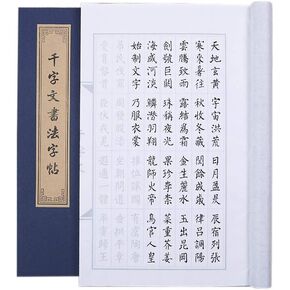 千字文書法字帖
天地玄黃 宇宙洪荒 日月盈昃 辰宿列張
寒來暑往 秋收冬藏 閏餘成歲 律呂調陽
雲騰致雨 露結爲霜 金生麗水 玉出崑岡
劍號巨闕 珠稱夜光 果珍李柰 菜重芥薑
海咸河淡 鱗潛羽翔 龍師火帝 鳥官人皇
始制文字 乃服衣裳